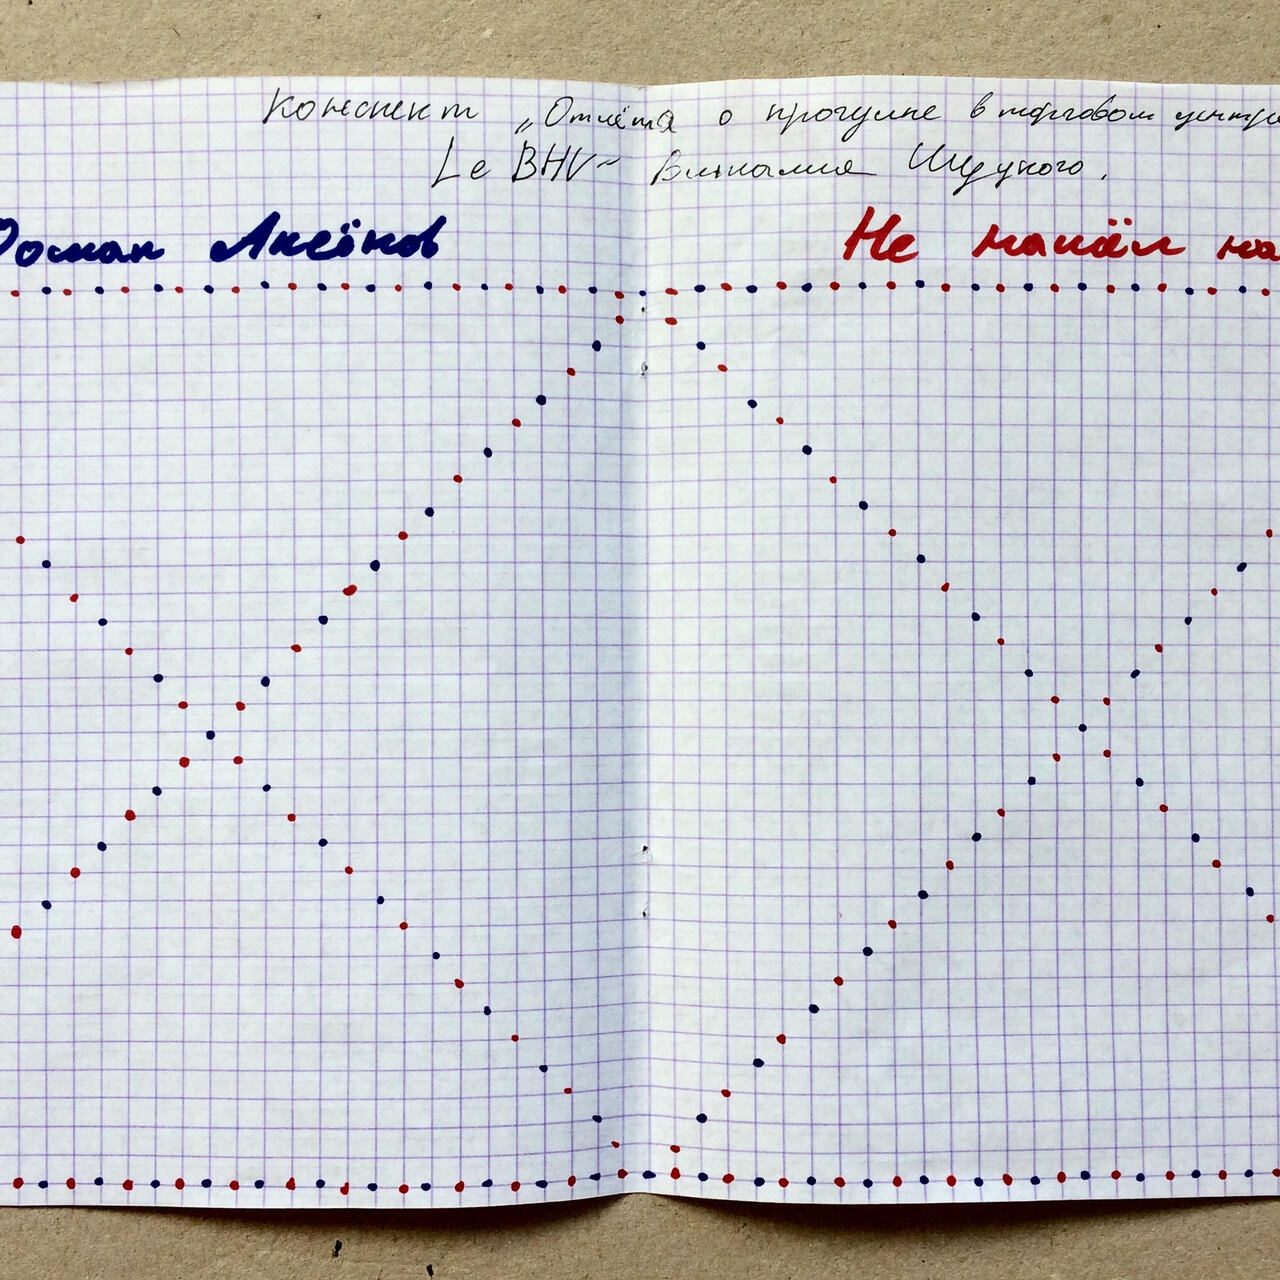 Конспект „Отчёта о прогулке в торговом центре
Le BHV" Виталия Шуцкого.
Роман Аксёнов Не нашёл на